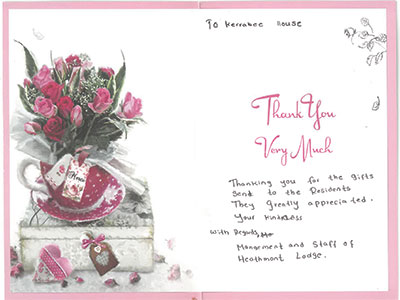 To Kerrabee House
Thank You
Very Much
Thanking you for the Gifts
Send to the Residents
They Greatly appreciated.
Your Kindness
With Regards,
Mangement and Staff of
Heathmont Lodge.